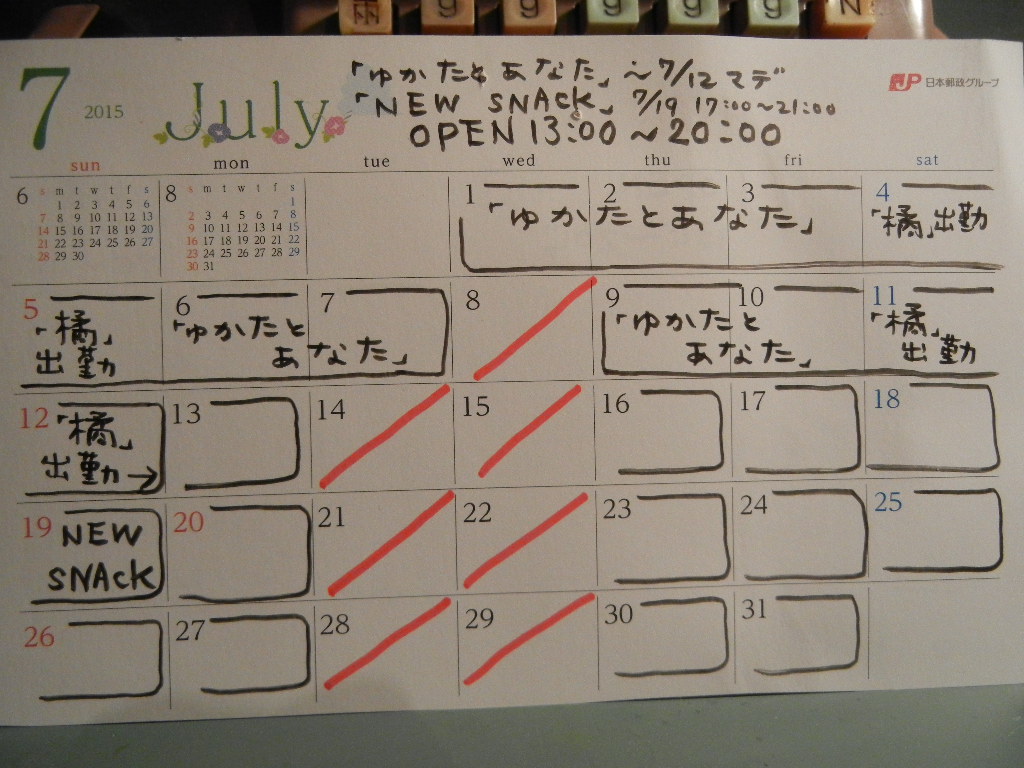 雨 g g g g g N
7 2015 July
「ゆかたとあなた」〜7/12マデ
「NEW SNACK」7/19 17:00〜21:00
OPEN 13:00〜20:00
JP 日本郵政グループ
sun mon tue wed thu fri sat
6 s m t w t f s
1 2 3 4 5 6
7 8 9 10 11 12 13
14 15 16 17 18 19 20
21 22 23 24 25 26 27
28 29 30
8 s m t w t f s
1
2 3 4 5 6 7 8
9 10 11 12 13 14 15
16 17 18 19 20 21 22
23 24 25 26 27 28 29
30 31
1 2 3 4
「ゆかたとあなた」
「橘」出勤
5 6 7 8 9 10 11
「橘」
出勤
「ゆかたと
あなた」
「ゆかたと
あなた」
「橘」
出勤
12 13 14 15 16 17 18
「橘」
出勤→
19 20 21 22 23 24 25
NEW
SNACK
26 27 28 29 30 31